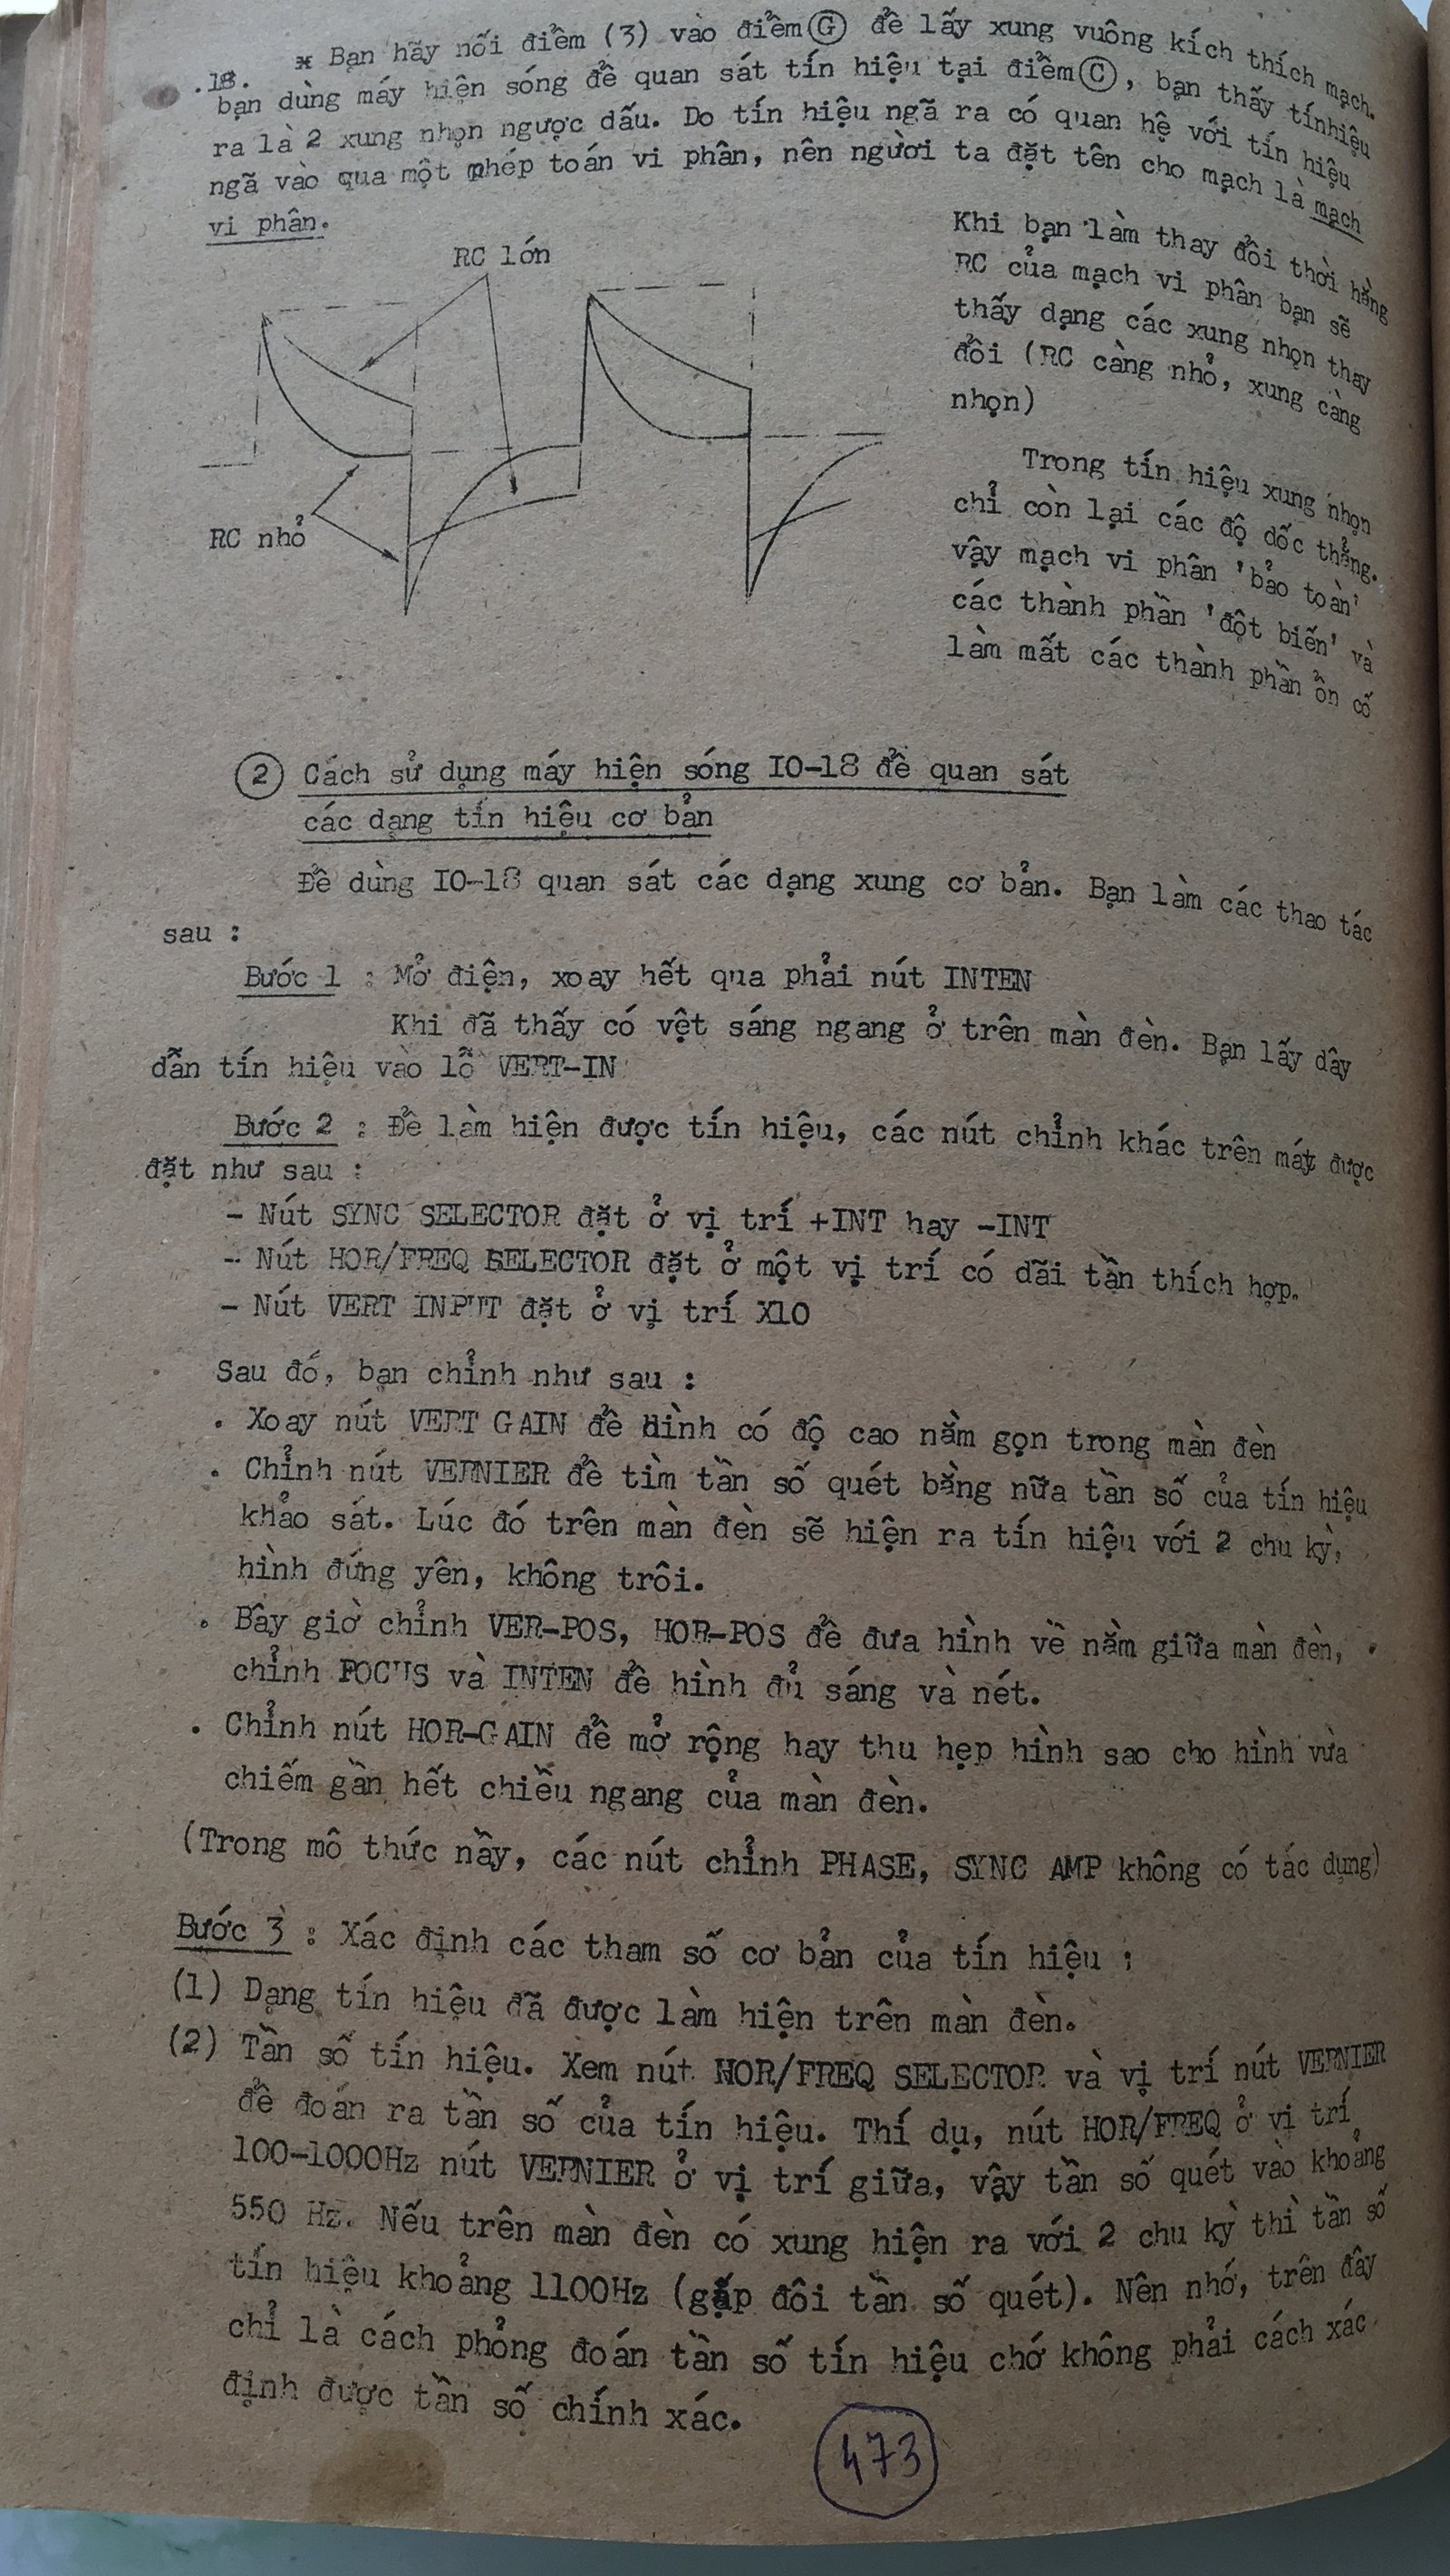 .18. * Bạn hãy nối điểm (3) vào điểm Ⓖ để lấy xung vuông kích thích mạch.
bạn dùng máy hiện sóng để quan sát tín hiệu tại điểm Ⓒ, bạn thấy tínhiệu
ra là 2 xung nhọn ngược dấu. Do tín hiệu ngã ra có quan hệ với tín hiệu
ngã vào qua một phép toán vi phân, nên người ta đặt tên cho mạch là mạch
vi phân.
RC lớn
RC nhỏ
Khi bạn làm thay đổi thời hằng
RC của mạch vi phân bạn sẽ
thấy dạng các xung nhọn thay
đổi (RC càng nhỏ, xung càng
nhọn)
Trong tín hiệu xung nhọn
chỉ còn lại các độ dốc thẳng.
vậy mạch vi phân 'bảo toàn'
các thành phần 'đột biến' và
làm mất các thành phần ổn cố
② Cách sử dụng máy hiện sóng IO-18 để quan sát
các dạng tín hiệu cơ bản
Để dùng IO-18 quan sát các dạng xung cơ bản. Bạn làm các thao tác
sau :
Bước 1 : Mở điện, xoay hết qua phải nút INTEN
Khi đã thấy có vệt sáng ngang ở trên màn đèn. Bạn lấy dây
dẫn tín hiệu vào lỗ VERT-IN
Bước 2 : Để làm hiện được tín hiệu, các nút chỉnh khác trên máy được
đặt như sau :
- Nút SYNC SELECTOR đặt ở vị trí +INT hay -INT
- Nút HOR/FREQ SELECTOR đặt ở một vị trí có dãi tần thích hợp.
- Nút VERT INPUT đặt ở vị trí X10
Sau đó, bạn chỉnh như sau :
. Xoay nút VERT GAIN để hình có độ cao nằm gọn trong màn đèn
. Chỉnh nút VERNIER để tìm tần số quét bằng nữa tần số của tín hiệu
khảo sát. Lúc đó trên màn đèn sẽ hiện ra tín hiệu với 2 chu kỳ,
hình đứng yên, không trôi.
. Bây giờ chỉnh VER-POS, HOR-POS để đưa hình về nằm giữa màn đèn,
chỉnh FOCUS và INTEN để hình đủ sáng và nét.
. Chỉnh nút HOR-GAIN để mở rộng hay thu hẹp hình sao cho hình vừa
chiếm gần hết chiều ngang của màn đèn.
(Trong mô thức nầy, các nút chỉnh PHASE, SYNC AMP không có tác dụng)
Bước 3 : Xác định các tham số cơ bản của tín hiệu :
(1) Dạng tín hiệu đã được làm hiện trên màn đèn.
(2) Tần số tín hiệu. Xem nút HOR/FREQ SELECTOR và vị trí nút VERNIER
để đoán ra tần số của tín hiệu. Thí dụ, nút HOR/FREQ ở vị trí
100-1000Hz nút VERNIER ở vị trí giữa, vậy tần số quét vào khoảng
550 Hz. Nếu trên màn đèn có xung hiện ra với 2 chu kỳ thì tần số
tín hiệu khoảng 1100Hz (gấp đôi tần số quét). Nên nhớ, trên đây
chỉ là cách phỏng đoán tần số tín hiệu chớ không phải cách xác
định được tần số chính xác.
473